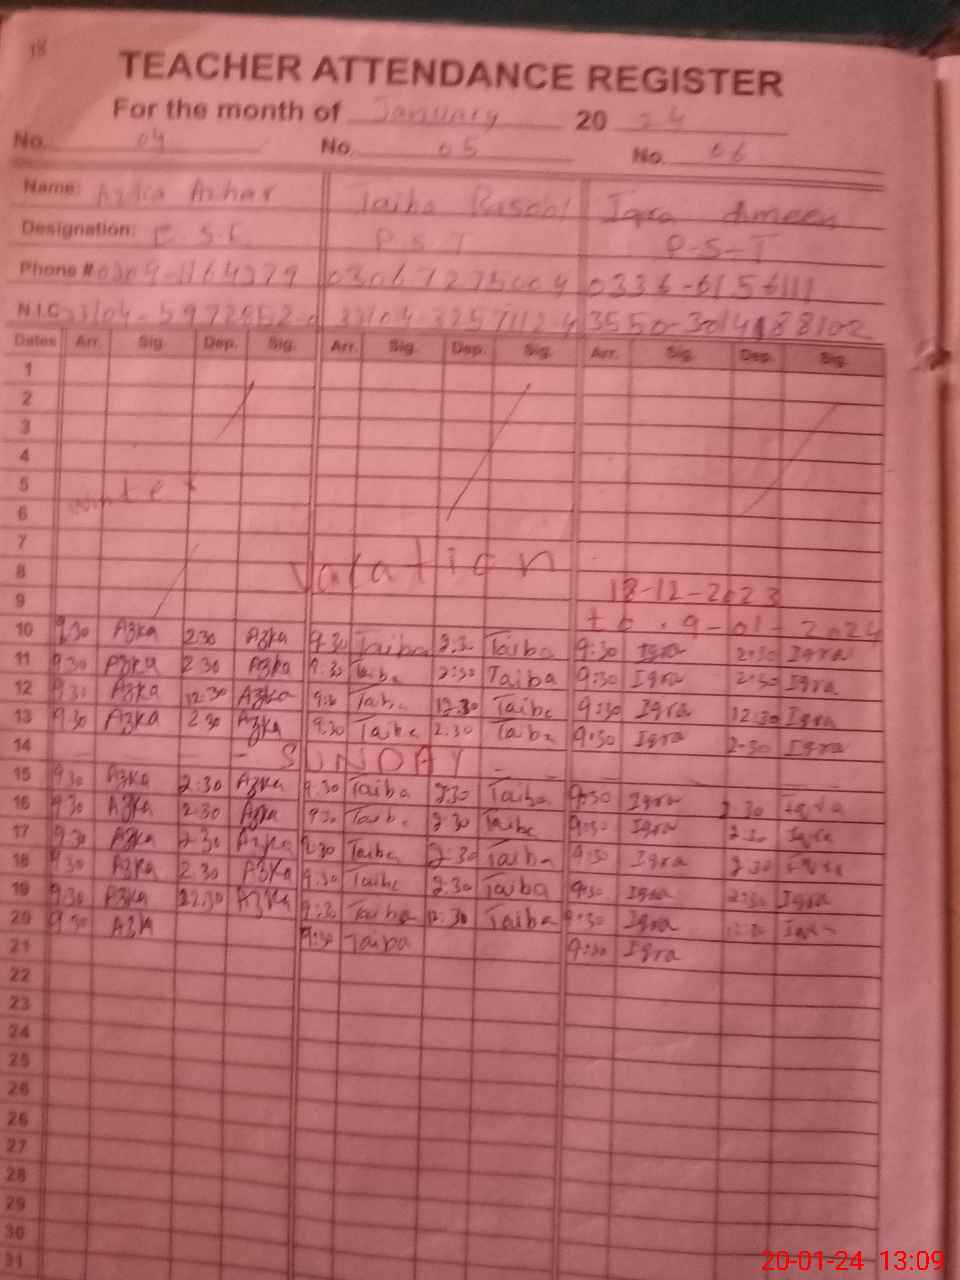 18
TEACHER ATTENDANCE REGISTER
For the month of January 20 24
No. 04 No. 05 No. 06
Name: Azka Azhar Taiba Rasool Iqra Ameen
Designation: P.S.T P-S-T
Phone # 0309-1164379 03067275004 0336-6156111
N.I.C
Dates Arr. Sig. Dep. Sig. Arr. Sig. Dep. Sig. Arr. Sig. Dep. Sig.
1
2
3
4
5 Winter
6
7
8 Vacation 18-12-2023
9 to 9-01-2024
10 9:30 Azka 2:30 Azka 9:30 Taiba 2:30 Taiba 9:30 Iqra 2:30 Iqra
11 9:30 Azka 2:30 Azka 9:30 Taiba 2:30 Taiba 9:30 Iqra 2:30 Iqra
12 9:30 Azka 12:30 Azka 9:30 Taiba 12:30 Taiba 9:30 Iqra 12:30 Iqra
13 9:30 Azka 2:30 Azka 9:30 Taiba 2:30 Taiba 9:30 Iqra 2:30 Iqra
14 - SUNDAY -
15 9:30 Azka 2:30 Azka 9:30 Taiba 2:30 Taiba 9:30 Iqra 2:30 Iqra
16 9:30 Azka 2:30 Azka 9:30 Taiba 2:30 Taiba 9:30 Iqra 2:30 Iqra
17 9:30 Azka 2:30 Azka 9:30 Taiba 2:30 Taiba 9:30 Iqra 2:30 Iqra
18 9:30 Azka 2:30 Azka 9:30 Taiba 2:30 Taiba 9:30 Iqra 2:30 Iqra
19 9:30 Azka 12:30 Azka 9:30 Taiba 12:30 Taiba 9:30 Iqra 12:30 Iqra
20 9:30 Azka 9:30 Taiba 9:30 Iqra
21
22
23
24
25
26
26
27
28
29
30
31
20-01-24 13:09